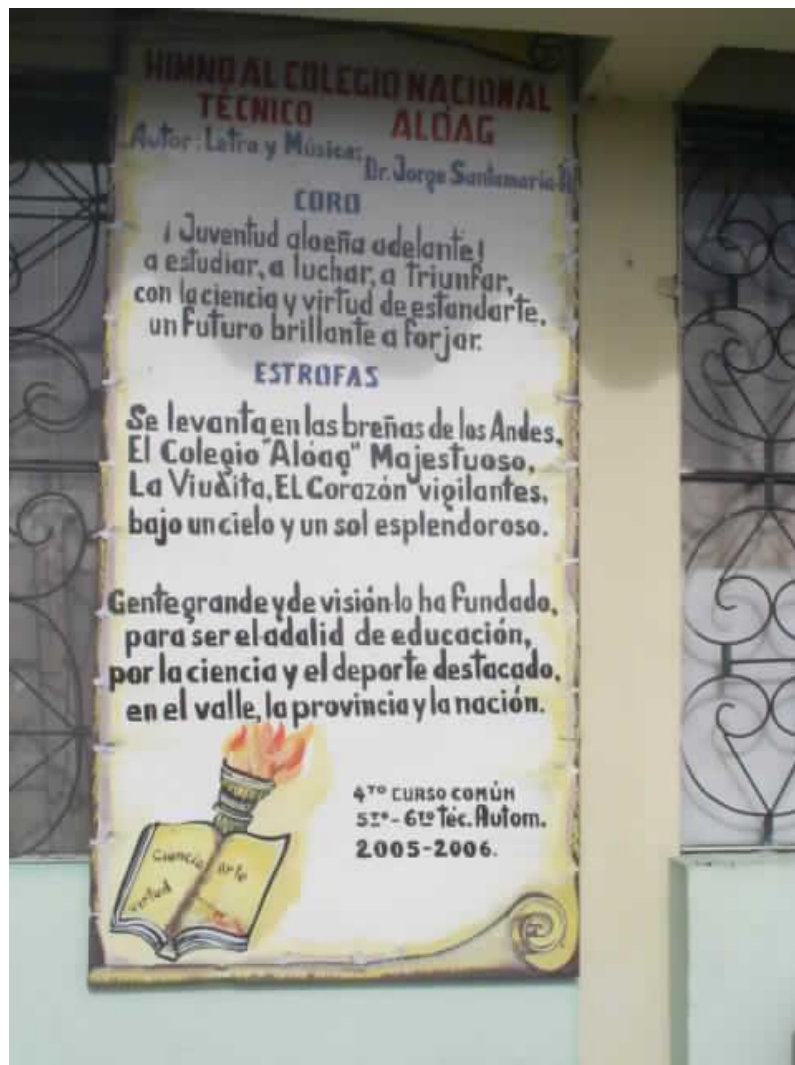 HIMNO AL COLEGIO NACIONAL
TÉCNICO ALÓAG
Autor: Letra y Música:
Dr. Jorge Santamaría
CORO
¡Juventud aloeña adelante!
a estudiar, a luchar, a triunfar,
con la ciencia y virtud de estandarte,
un futuro brillante a forjar.
ESTROFAS
Se levanta en las breñas de los Andes,
El Colegio "Alóag" Majestuoso,
La Viudita, EL Corazón vigilantes,
bajo un cielo y un sol esplendoroso.
Gente grande y de visión lo ha fundado,
para ser el adalid de educación,
por la ciencia y el deporte destacado,
en el valle, la provincia y la nación.
4TO CURSO COMÚN
5TO - 6TO Téc. Autom.
2005-2006.
Ciencia arte
virtud